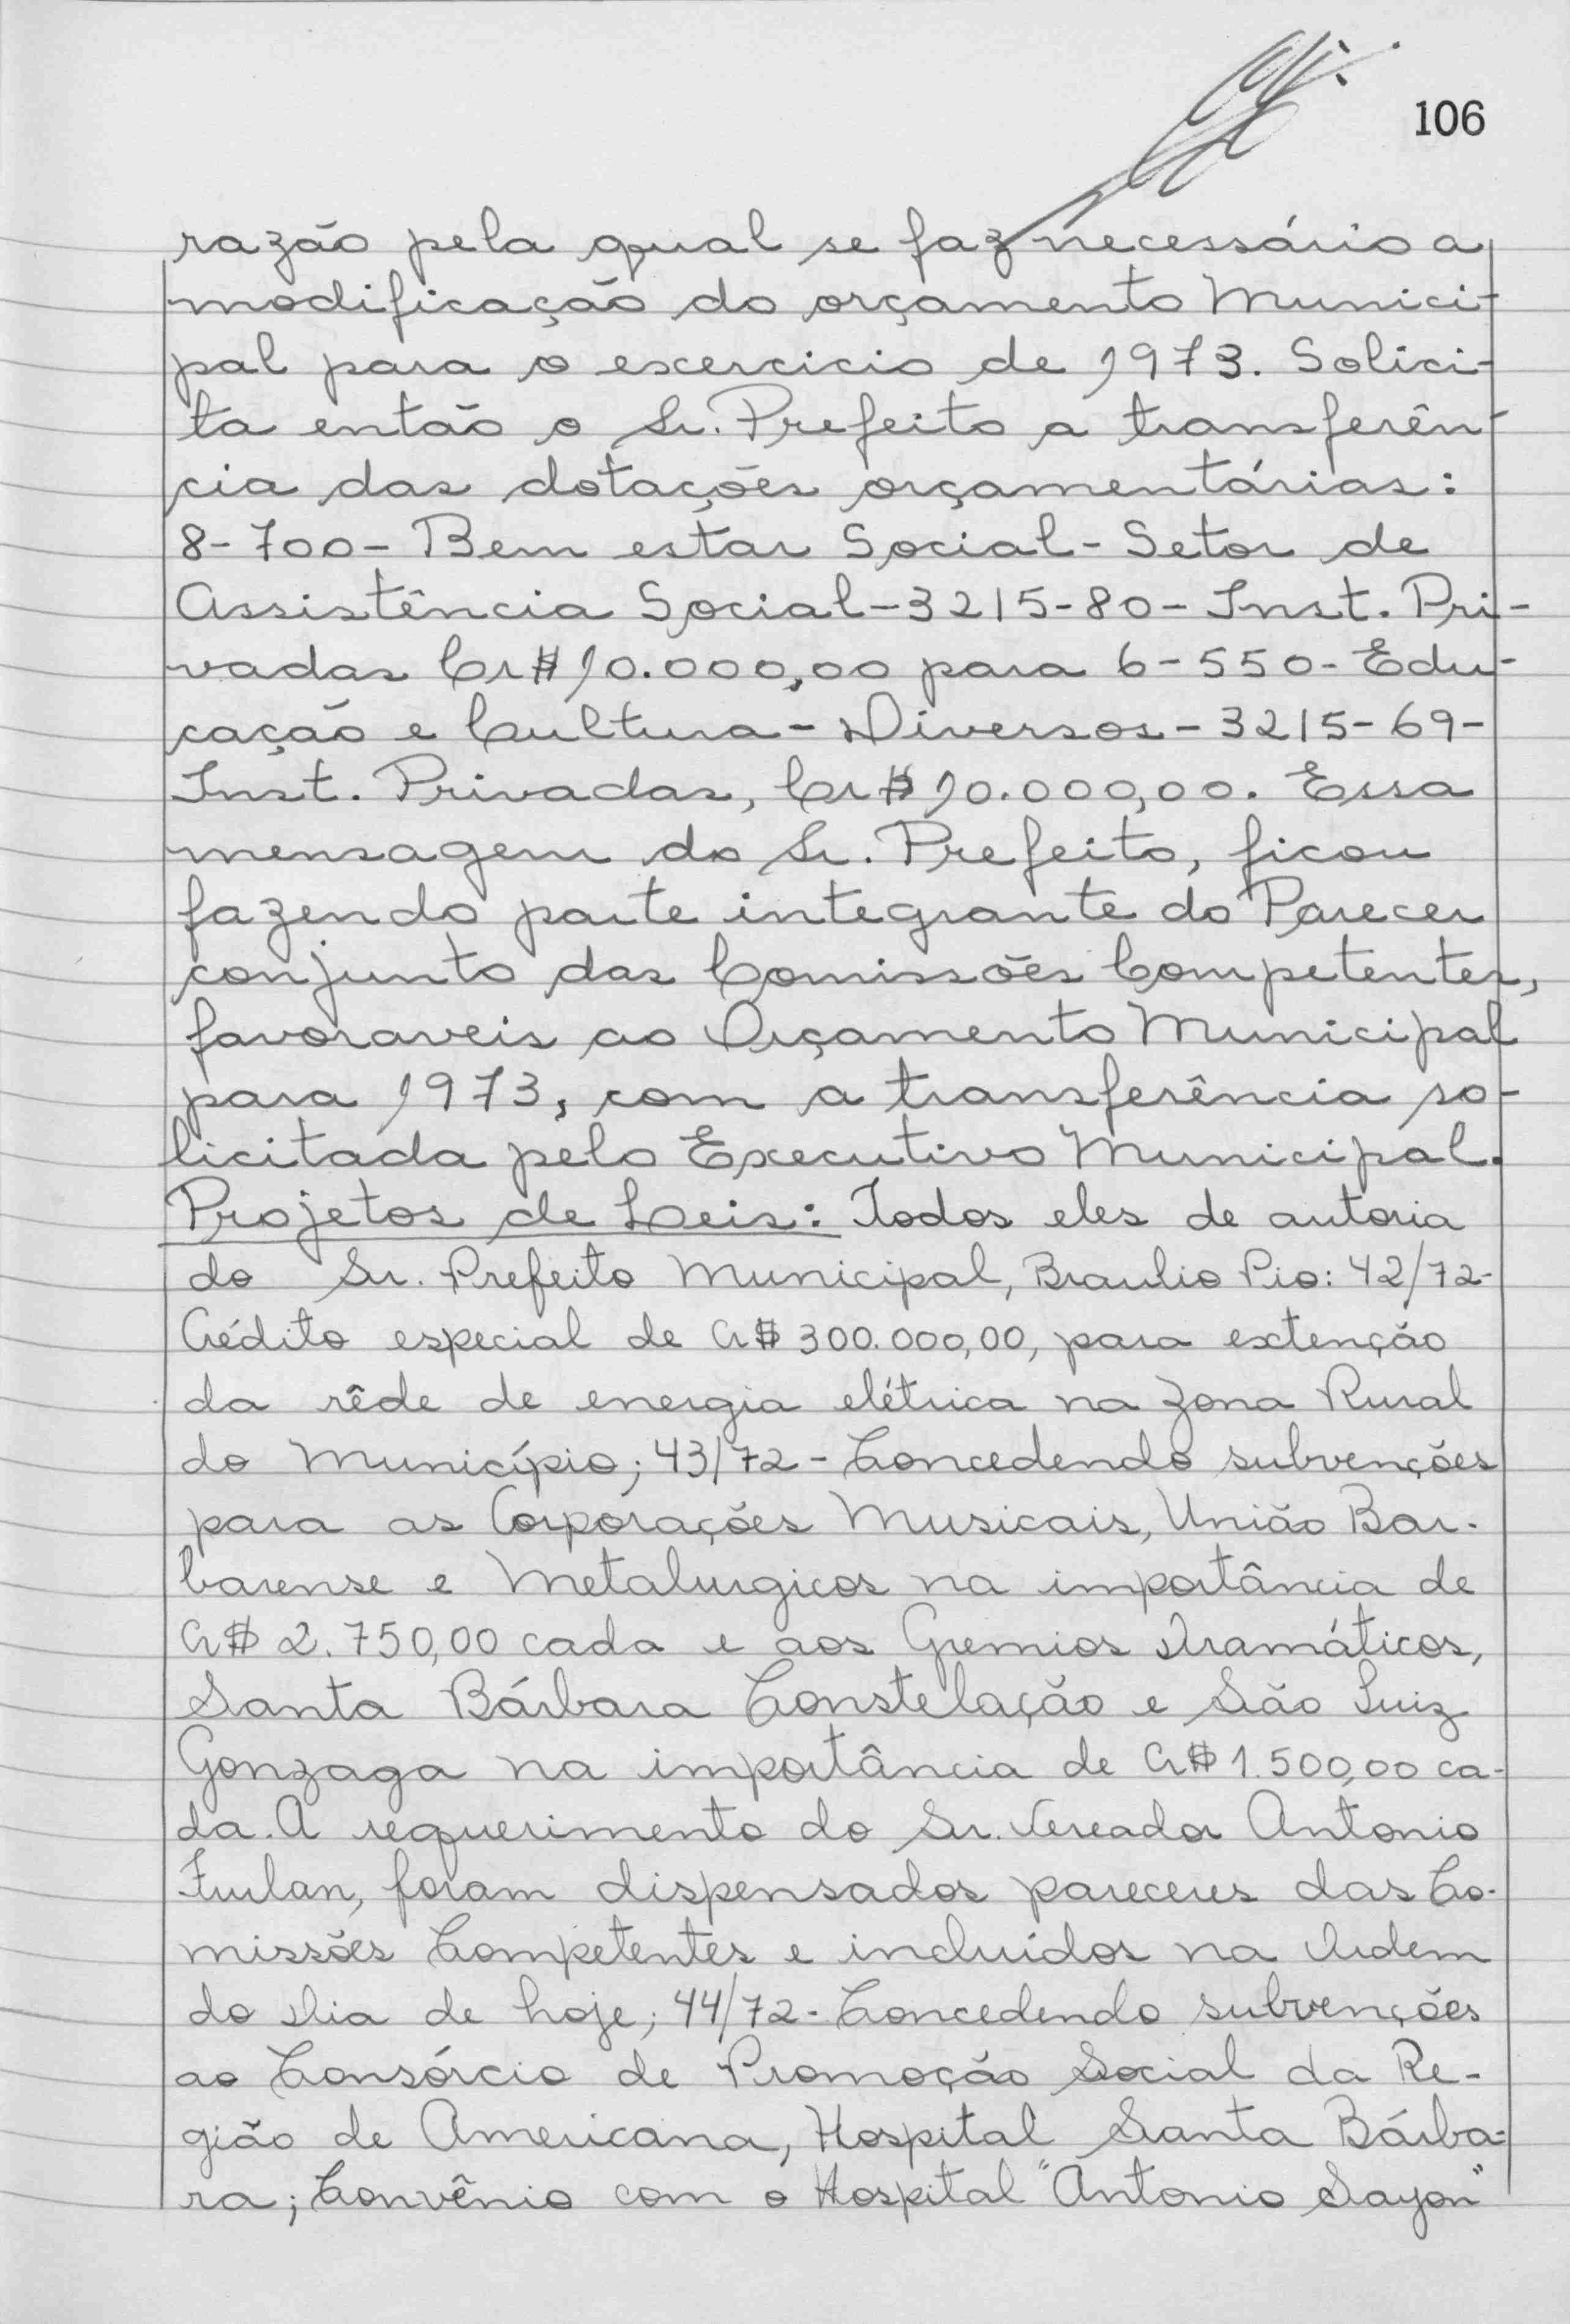 106
razão pela qual se faz necessário a
modificação do orçamento Munici-
pal para o excercicio de 1973. Solici-
ta então o Sr. Prefeito a transferên-
cia das dotações orçamentárias:
8-700- Bem estar Social- Setor de
Assistência Social-3215-80- Inst. Pri-
vadas Cr$ 10.000,00 para 6-550- Edu-
cação e Cultura- Diversos- 3215-69-
Inst. Privadas, Cr$ 10.000,00. Essa
mensagem do Sr. Prefeito, ficou
fazendo parte integrante do Parecer
conjunto das Comissões Competentes,
favoraveis ao Orçamento Municipal
para 1973, com a transferência so-
licitada pelo Executivo Municipal.
Projetos de Leis: Todos eles de autoria
do Sr. Prefeito Municipal, Braulio Pio: 42/72-
Crédito especial de Cr$ 300.000,00, para extenção
da rêde de energia elétrica na zona Rural
do Município; 43/72- Concedendo subvenções
para as Corporações Musicais, União Bar-
barense e Metalurgicos na importância de
Cr$ 2.750,00 cada e aos Gremios Dramáticos,
Santa Bárbara Constelação e São Luiz
Gonzaga na importância de Cr$ 1.500,00 ca-
da. A requerimento do Sr. Vereador Antonio
Furlan, foram dispensados pareceres das Co-
missões Competentes e incluidos na Ordem
do Dia de hoje; 44/72- Concedendo subvenções
ao Consórcio de Promoção Social da Re-
gião de Americana, Hospital Santa Bárba-
ra; Convênio com o Hospital "Antonio Sayon"